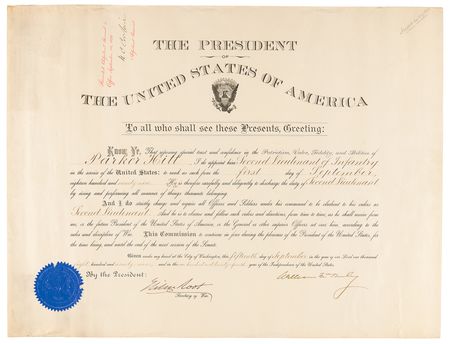 THE PRESIDENT
OF
THE UNITED STATES OF AMERICA
To all who shall see these Presents, Greeting:
Know Ye, That reposing special trust and confidence in the Patriotism, Valor, Fidelity, and Abilities of
Parker Hitt I do appoint him Second Lieutenant of Infantry
in the service of the United States: to rank as such from the first day of September
eighteen hundred and ninety nine. He is therefore carefully and diligently to discharge the duty of Second Lieutenant
by doing and performing all manner of things thereunto belonging.
And I do strictly charge and require all Officers and Soldiers under his command to be obedient to his orders as
Second Lieutenant. And he is to observe and follow such orders and directions, from time to time, as he shall receive from
me, or the future President of the United States of America, or the General or other superior Officers set over him, according to the
rules and discipline of War. This Commission to continue in force during the pleasure of the President of the United States, for
the time being and until the end of the next session of the Senate.
Given under my hand at the City of Washington, this fifteenth day of September in the year of our Lord one thousand
eight hundred and ninety nine and in the one hundred and twenty fourth year of the Independence of the United States.
By the President:
William McKinley
Elihu Root
Secretary of War.